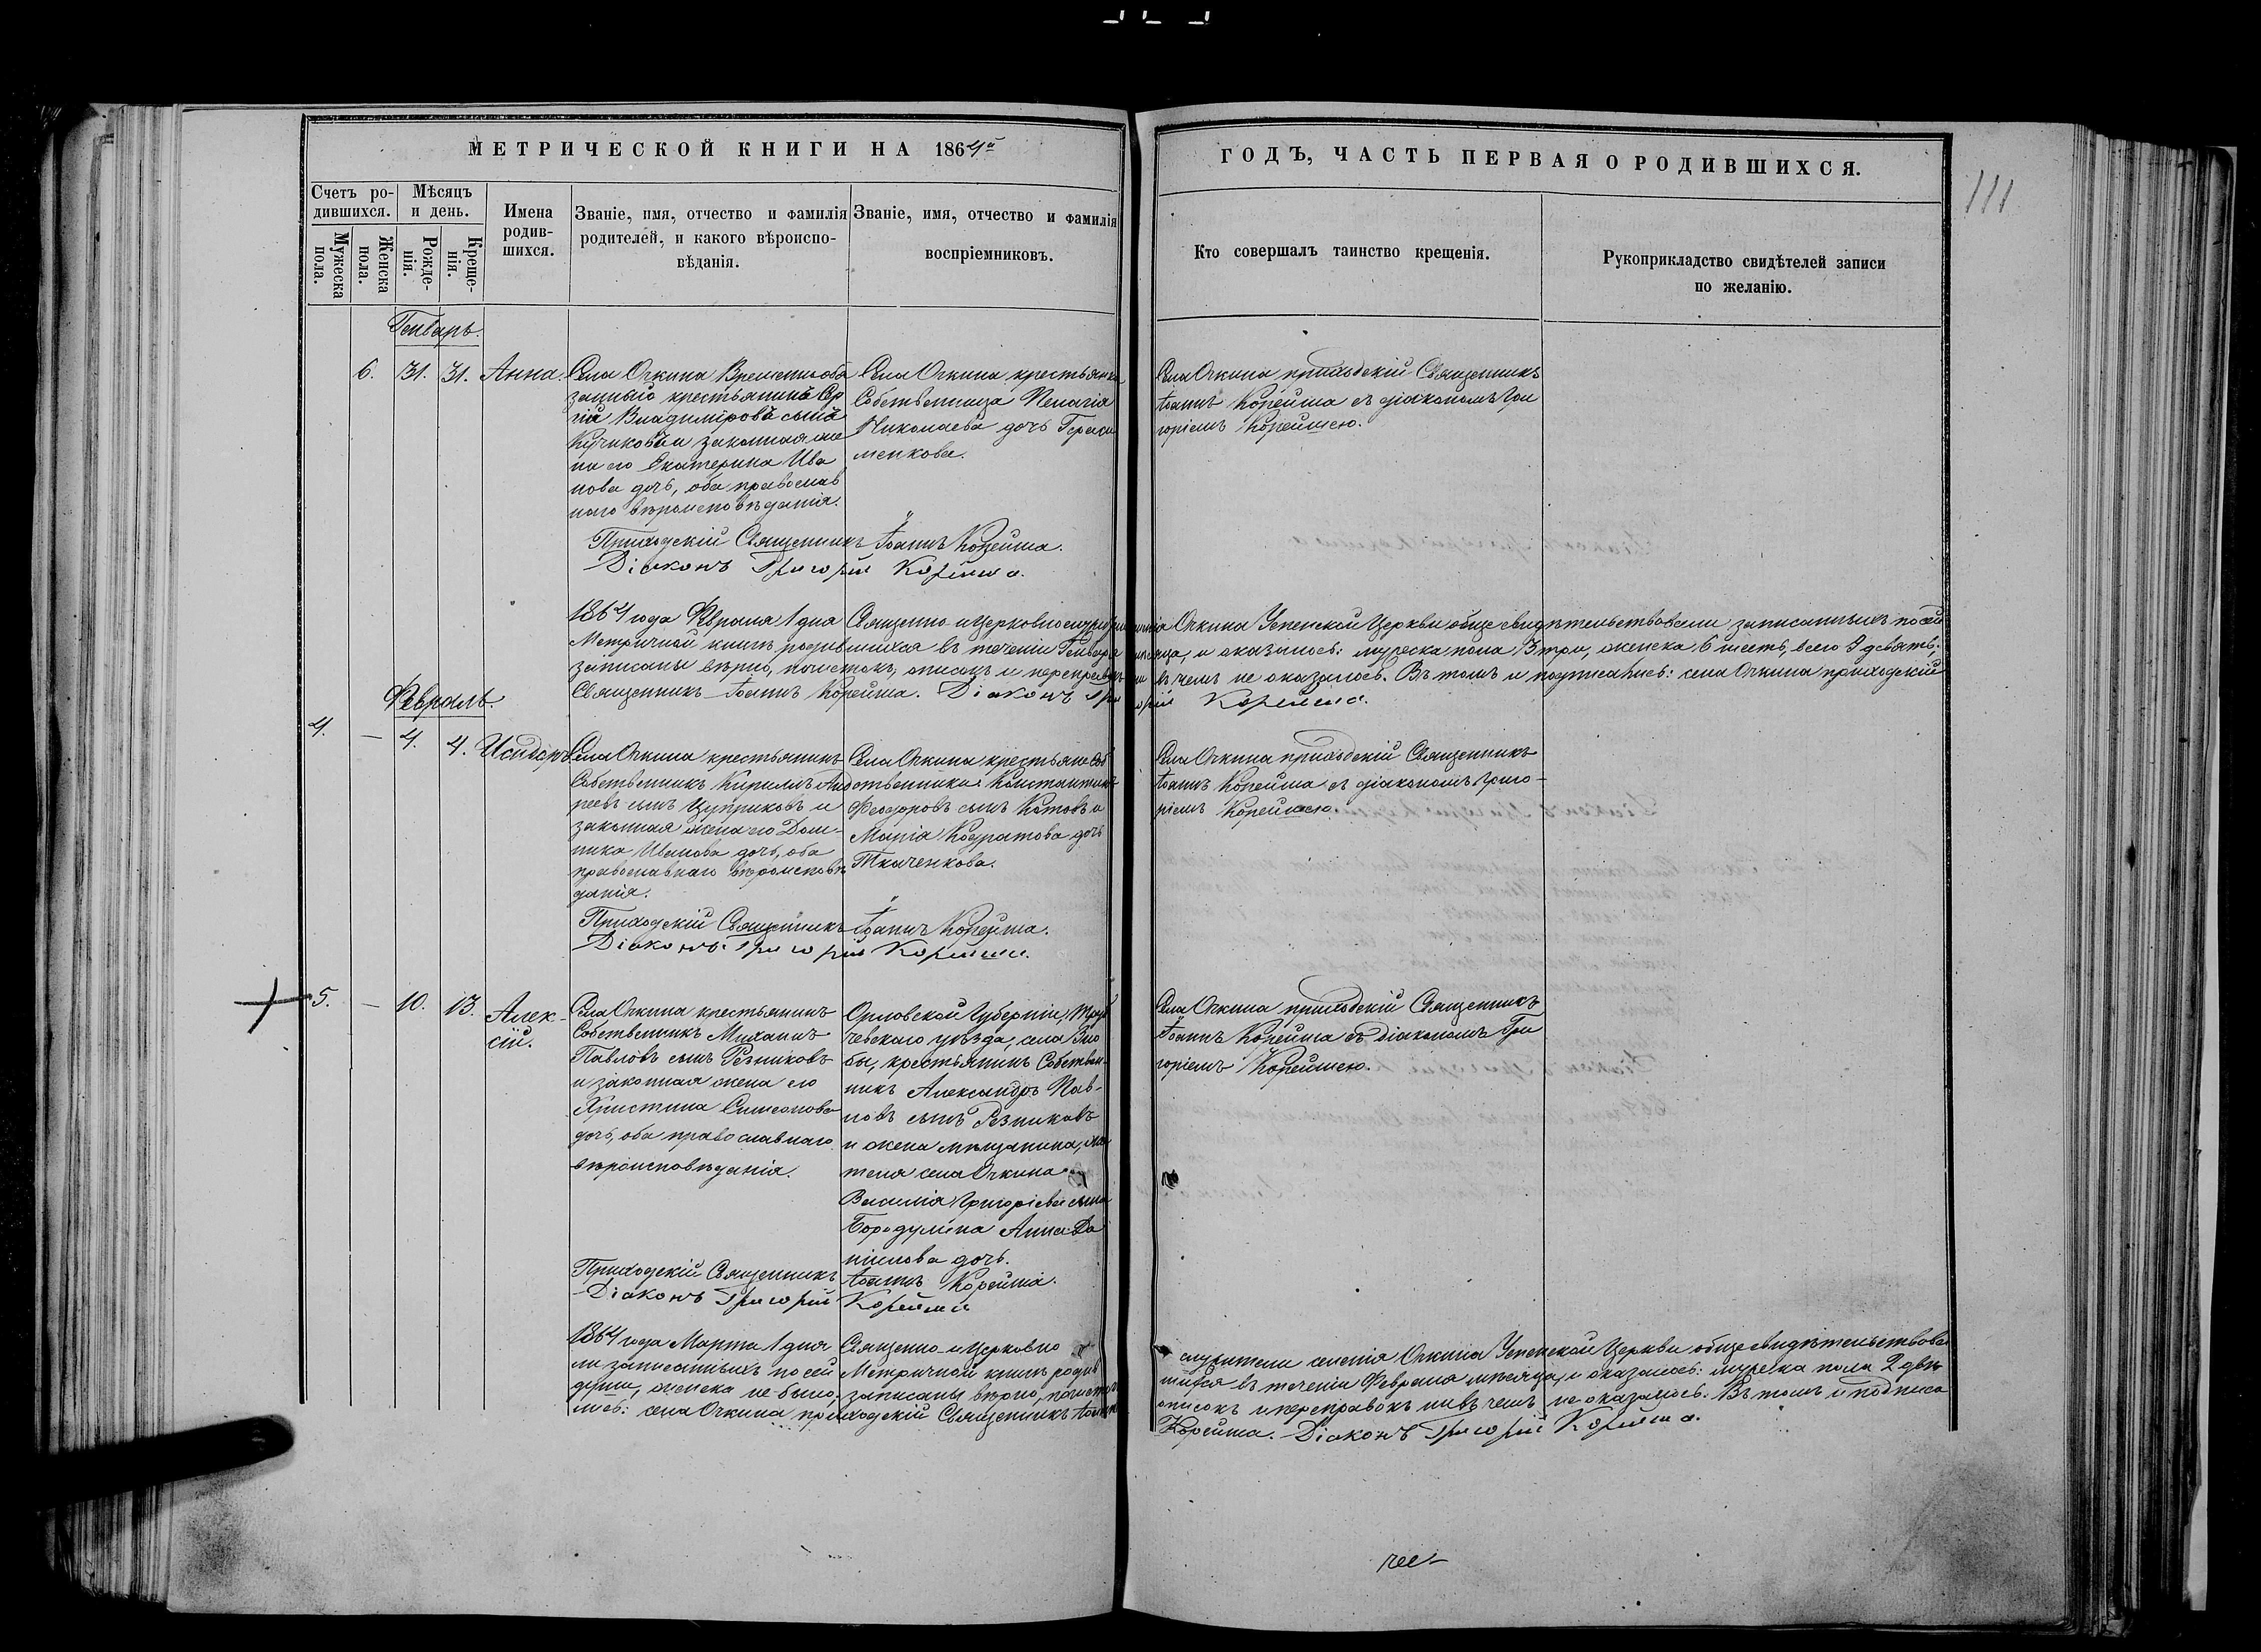 МЕТРИЧЕСКОЙ КНИГИ НА 1864й
ГОДЪ, ЧАСТЬ ПЕРВАЯ О РОДИВШИХСЯ.
111
Счетъ ро-
дившихся.
Мужеска
пола.
Женска
пола.
Мѣсяцъ
и день.
Рожде-
нія.
Креще-
нія.
Имена
родив-
шихся.
Званіе, имя, отчество и фамилія
родителей, и какого вѣроиспо-
вѣданія.
Званіе, имя, отчество и фамилія
воспріемниковъ.
Кто совершалъ таинство крещенія.
Рукоприкладство свидѣтелей записи
по желанію.
Генварь.
6. 31. 31. Анна.
Села Очкина Временнообя
заннаго крестьянинъ Сер
гій Владиміровъ сынъ
и законная же
на его Екатерина Ива
нова дочь, оба православ
наго вѣроисповѣданія.
Села Очкина крестьянка
Собственница Пелагія
Николаева дочь Гераси
менкова.
Села Очкина приходскій Священникъ
Іоаннъ Корейша съ діакономъ Гри
горіемъ Корейшею.
Приходскій Священникъ Іоаннъ Корейша.
Діаконъ Григорій Корейша.
1864 года Февраля 1 дня Священно и церковнослужители селенія Очкина Успенской Церкви обще свидѣтельствовали записанныхъ по сей
Метричной книгѣ родившихся въ теченіи Генваря мѣсяца, и оказалось: мужеска пола 3 три, женска 6 шесть, всего 9 девять;
записаны вѣрно, почистокъ, описокъ и переправокъ ни въ чемъ не оказалось. Въ томъ и подписались: села Очкина приходскій
Священникъ Іоаннъ Корейша. Діаконъ Григорій Корейша.
Февраль.
4. — 4. 4. Исидоръ
Села Очкина крестьянинъ
Собственникъ Кириллъ Анд
реевъ сынъ Цуприковъ и
законная жена его Дом-
ника Иванова дочь, оба
православнаго вѣроисповѣ
данія.
Села Очкина крестьяне Соб
ственники Константинъ
Феодоровъ сынъ Котовъ и
Марія Кодратова дочь
Ткаченкова.
Села Очкина приходскій Священникъ
Іоаннъ Корейша съ діакономъ Григо-
ріемъ Корейшею.
Приходскій Священникъ Іоаннъ Корейша.
Діаконъ Григорій Корейша.
5. — 10. 13. Алек-
сій.
Села Очкина крестьянинъ
Собственникъ Михаилъ
Павловъ сынъ Резниковъ
и законная жена его
Христина Симеонова
дочь, оба православнаго
вѣроисповѣданія.
Орловской Губерніи, Труб
чевскаго уѣзда, села
бы, крестьянинъ Собствен-
никъ Александръ Пав-
ловъ сынъ Резниковъ
и жена мѣщанина, жи
теля села Очкина
Василія Григоріева сына
Бородулина Анна Да
ніилова дочь.
Села Очкина приходскій Священникъ
Іоаннъ Корейша съ діакономъ Гри
горіемъ Корейшею.
Приходскій Священникъ Іоаннъ Корейша.
Діаконъ Григорій Корейша
1864 года Марта 1 дня Священно-и Церковно служители селенія Очкина Успенской Церкви обще свидѣтельствова
ли записанныхъ по сей Метричной книгѣ родив шихся въ теченіи Февраля мѣсяца, и оказалось: мужеска пола 2 двѣ
души, женска не было; записаны вѣрно, почистокъ описокъ и переправокъ ни въ чемъ не оказалось. Въ томъ и подписа
лись: села Очкина приходскій Священникъ Іоаннъ Корейша. Діаконъ Григорій Корейша.